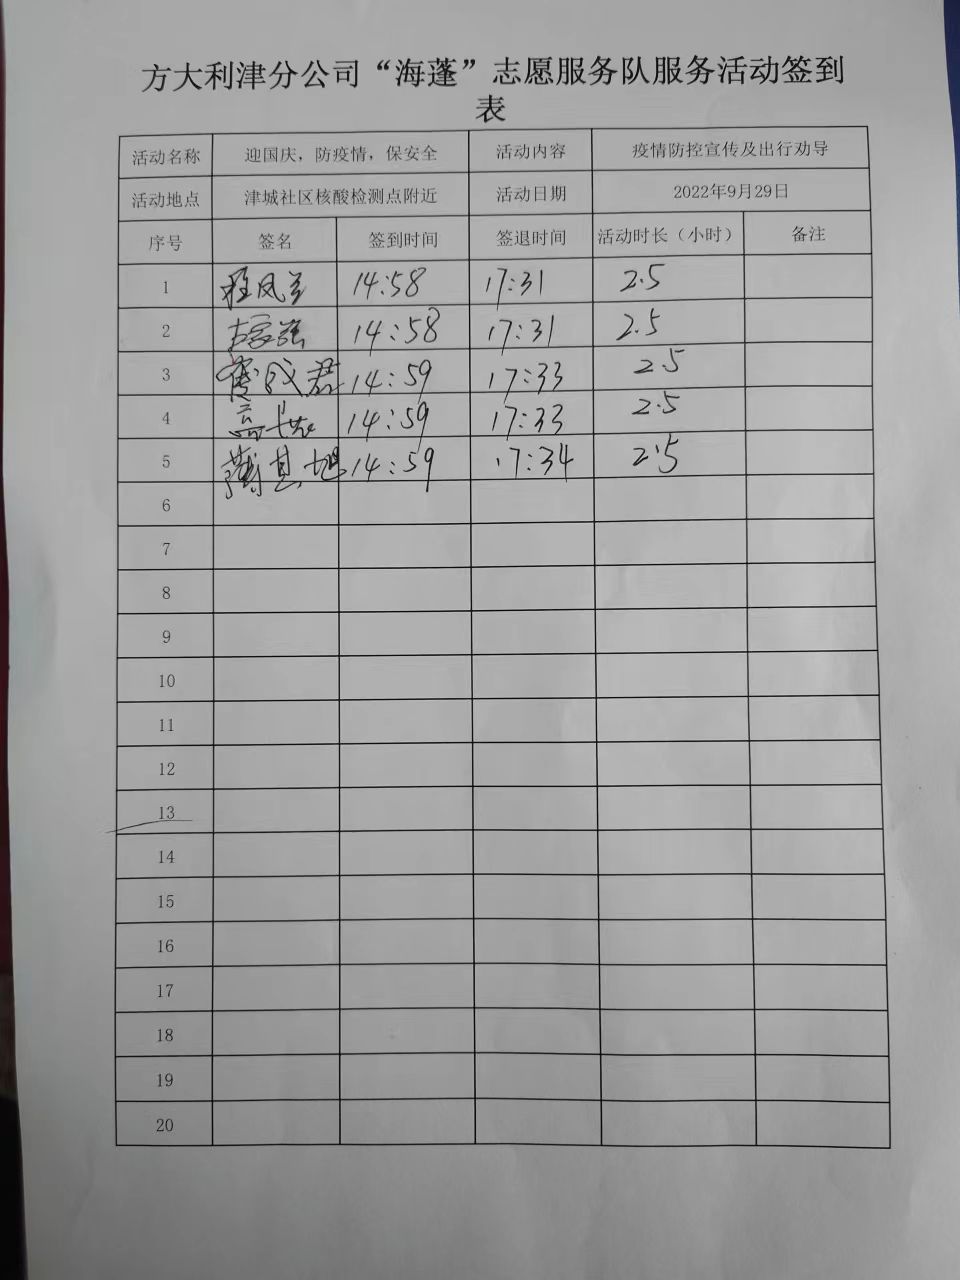 方大利津分公司“海蓬”志愿服务队服务活动签到
表
活动名称 迎国庆，防疫情，保安全 活动内容 疫情防控宣传及出行劝导
活动地点 津城社区核酸检测点附近 活动日期 2022年9月29日
序号 签名 签到时间 签退时间 活动时长（小时） 备注
1 14:58 17:31 2.5
2 14:58 17:31 2.5
3 14:59 17:33 2.5
4 14:59 17:33 2.5
5 14:59 17:34 2.5
6
7
8
9
10
11
12
13
14
15
16
17
18
19
20